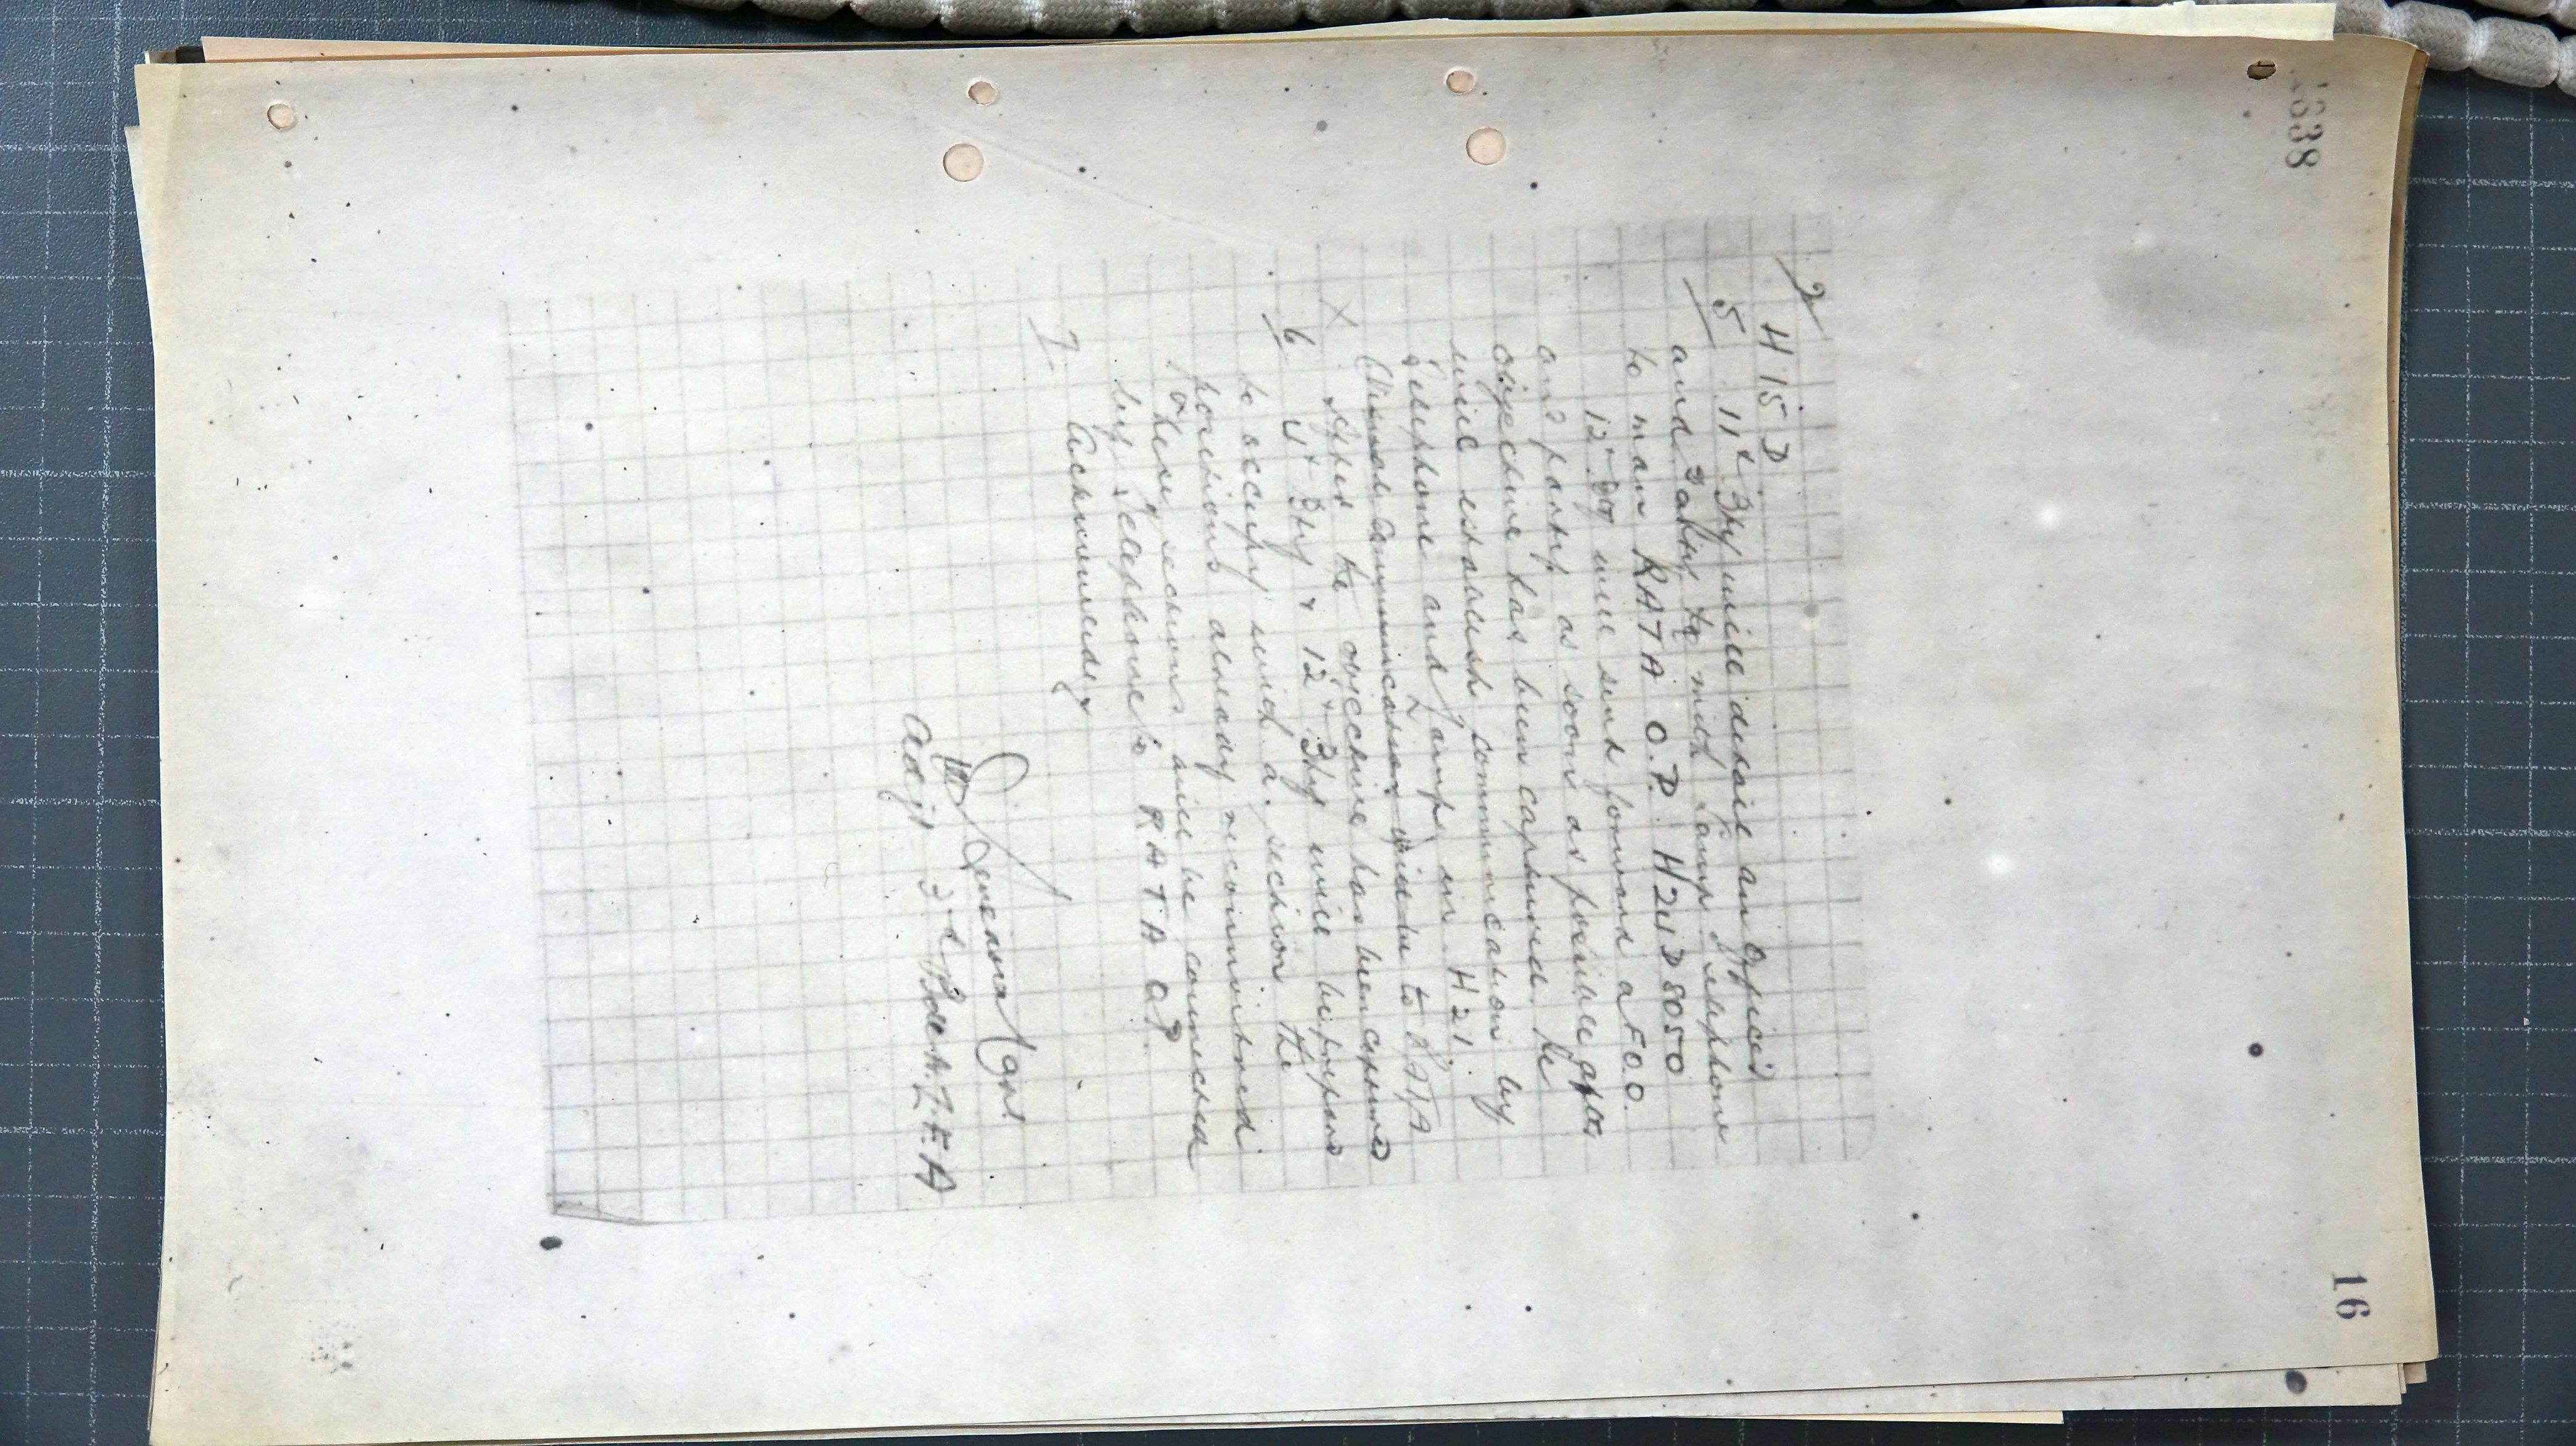 1638
16
2/
H 15 D
5 11th Bty will detail an Officer
and 3 akus to with Lamp & telephone
to man RATA O.P. H24D 8050
12th Bty will send forward a F.O.O.
and party as soon as possible after
objective has been captured. He
will establish communication by
telephone and Lamp in H 21.
(Visual Communication will be to RATA
X after the objective has been captured
6/ 4th Bty & 12th Bty will be prepared
to occupy with a section the
positions already reconnoitred
These sections will be connected
by telephone to RATA O.P.
7. Acknowledge
Capt
Adjt 3rd Bde N.Z.F.A